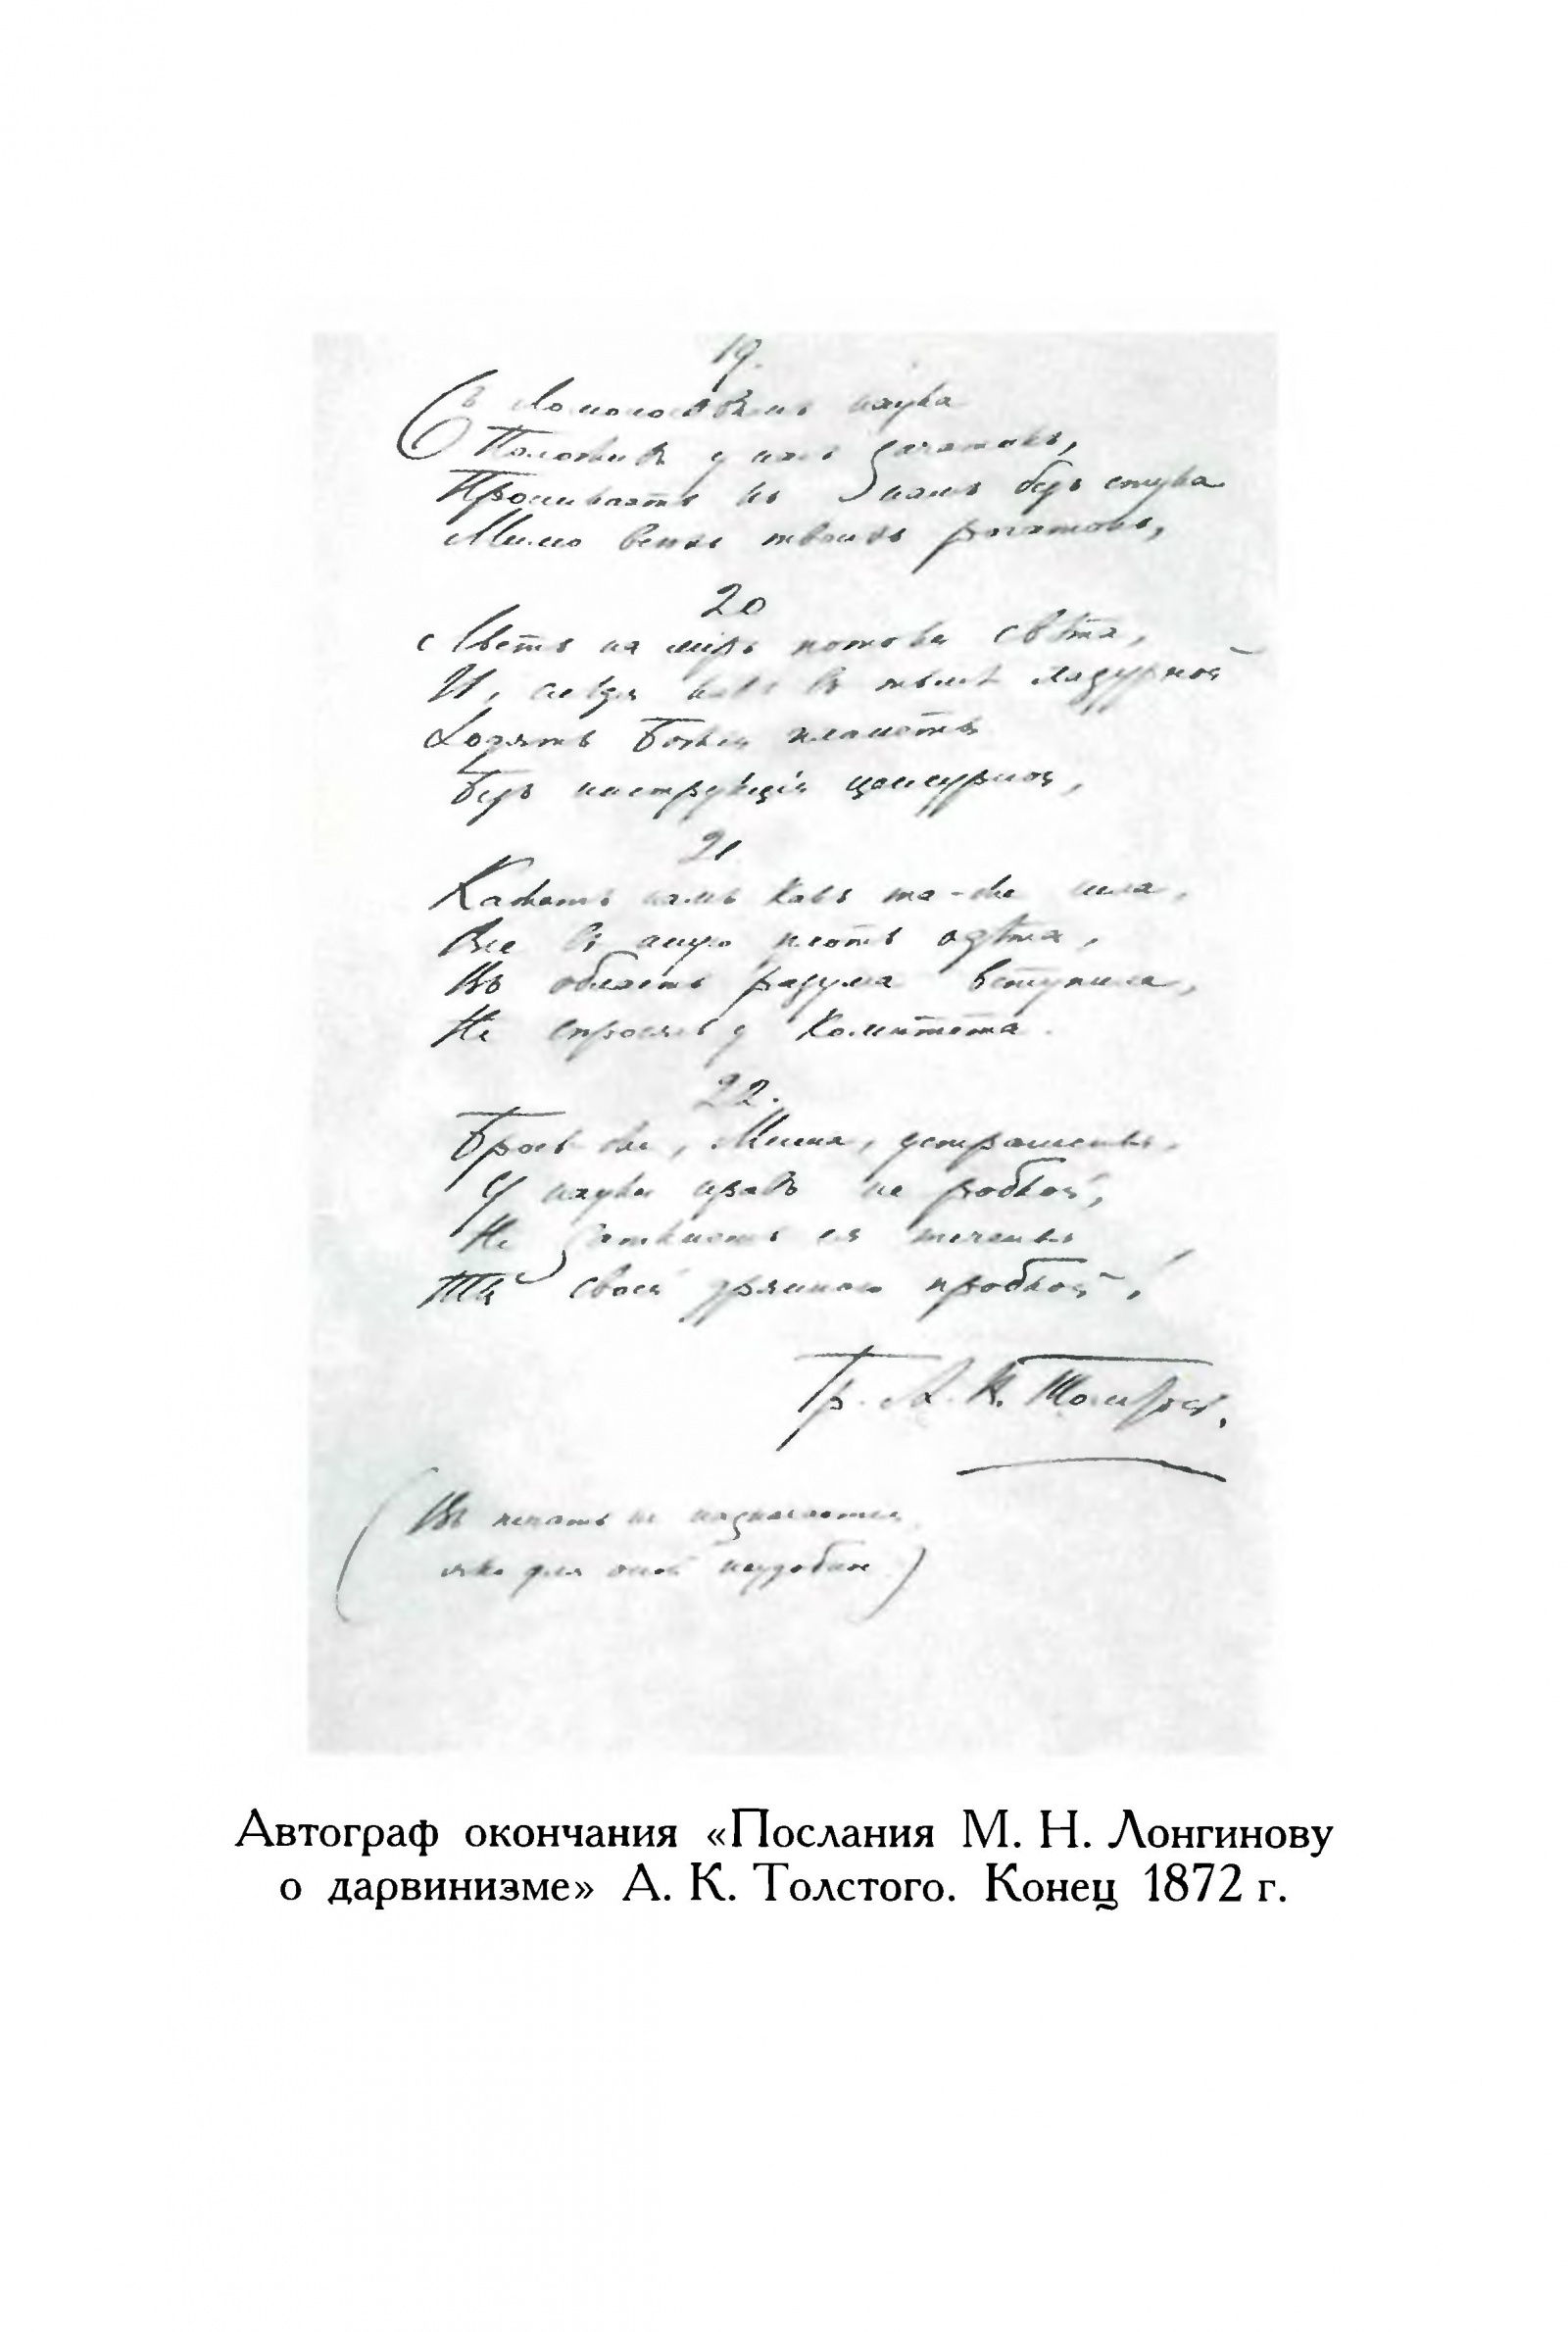 19.
Съ Ломоносовымъ наука
Положивъ у насъ зачатокъ,
Проникаетъ къ намъ безъ стука
Мимо всѣхъ твоихъ рогатокъ,
20
Льетъ на міръ потоки свѣта,
И, слѣдя какъ въ тьмѣ лазурной
Ходятъ Божіи планеты
Безъ инструкціи цензурной,
21
Кажетъ намъ какъ та-же сила,
Все въ иную плоть одѣта,
Въ область разума вступила,
Не спросясь у Комитета.
22.
Брось же, Миша, устрашенья,
У науки нравъ не робкой,
Не заткнешь ея теченья
Ты своей дрянною пробкой!
Гр. А. К. Толстой.
(Въ печать не назначается,
яко для оной неудобное)
Автограф окончания «Послания М. Н. Лонгинову
о дарвинизме» А. К. Толстого. Конец 1872 г.